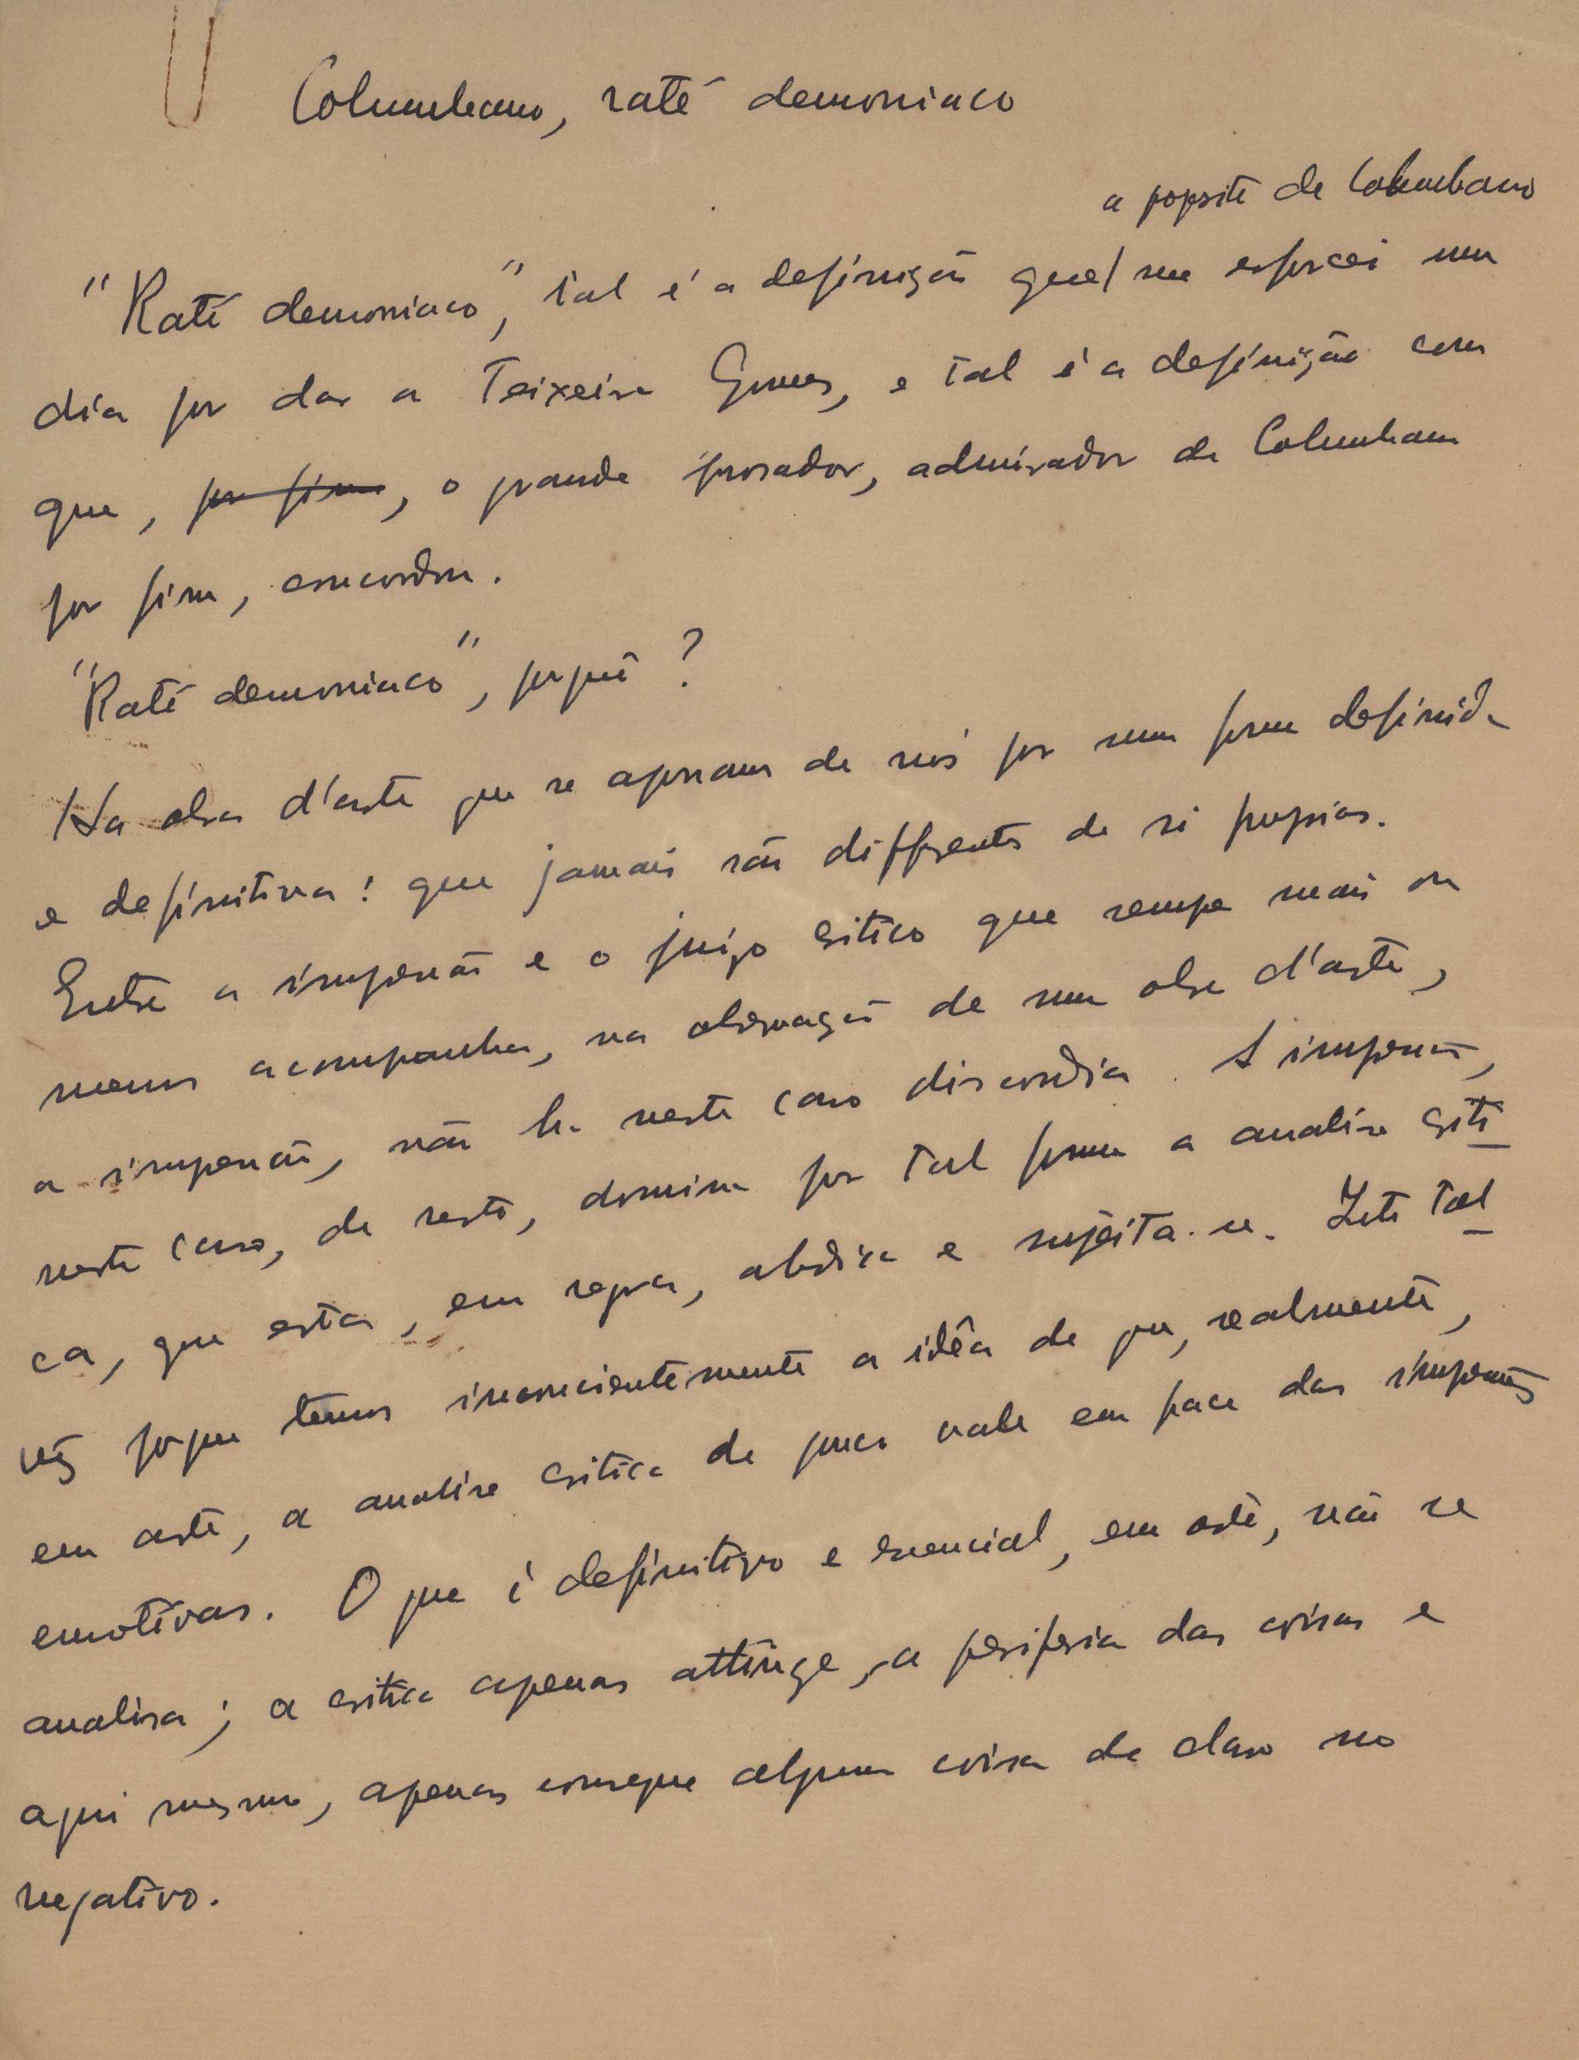 Columbano, raté demoniaco
a proposito de Columbano
"Raté demoniaco", tal é a definição que me esforcei um
dia por dar a Teixeira Gomes, e tal é a definição com
que, por fim, o grande prosador, admirador de Columbano
por fim, concordou.
"Raté demoniaco", porquê?
Ha obras d'arte que se apossam de nós por uma forma definida
e definitiva: que jamais são differentes de si proprias.
Entre a impressão e o juizo critico que sempre mais ou
menos acompanha, na observação de uma obra d'arte,
a impressão, não ha neste caso discordia. A impressão,
neste caso, de resto, domina por tal forma a analise criti
ca, que esta, em regra, abdica e sujeita-se. Isto tal
vês porque temos inconscientemente a idêa de que, realmente,
em arte, a analise critica de pouco vale em face das impressões
emotivas. O que é definitivo e essencial, em arte, não se
analisa; a critica apenas attinge a periferia das coisas e
aqui mesmo, apenas consegue alguma coisa de claro no
negativo.